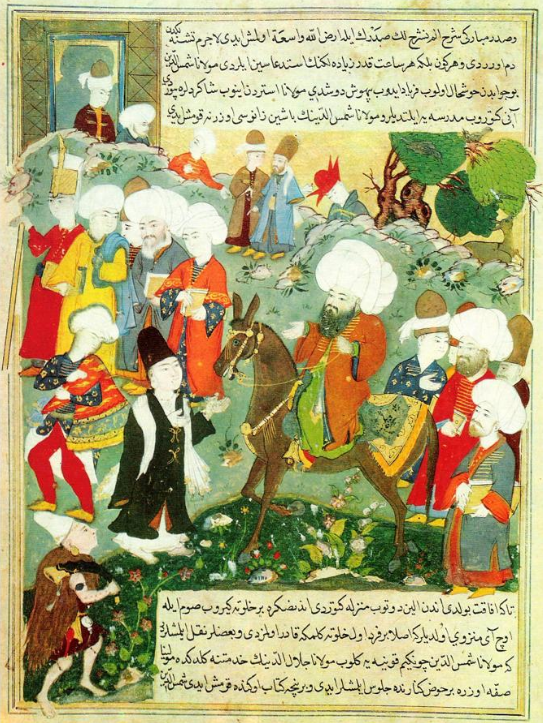 وصدر مبارکی شرح الم نشرح لك صدرك ایله ارض الله واسعة اولمش ایدی لاجرم تشنه لکدن
دم اوردی وهر کون بلکه هر ساعت قدر زیاده لکنك استدعاسین ایلردی مولانا شمس الدین
بو جوابدن خوشحال اولوب فریاد ایدوب بیهوش دوشدی مولانا استردن اینوب شاکردلره بیوردی
آنی کوتوروب مدرسه یه ایلتدیلر و مولانا شمس الدینك باشین زانوسی اوزرنه قومش ایدی
تا که افاقت بولدی اندن الین دوتوب منزله کوتوردی اندنصکره بر خلوته کیروب صوم ایله
اوچ آی منزوی اولدیلر که اصلا بر فرد اول خلوته کلمکه قادر اولمزدی و بعضلر نقل ایلشلر
که مولانا شمس الدین چونکیم قونیه یه کلوب مولانا جلال الدینك خدمتنه کلدکده مولانا
صفه اوزره بر حوض کنارنده جلوس ایلشلر ایدی و برنیچه کتاب اوکنده قومش ایدی شمس الدین